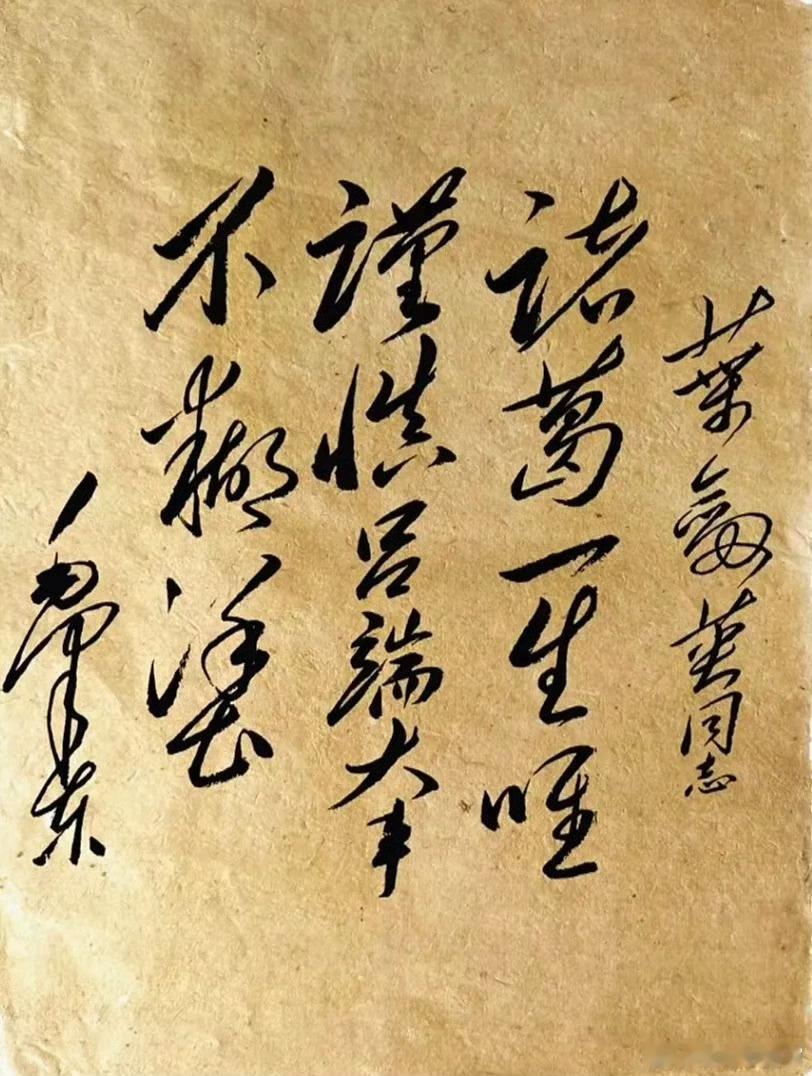 葉劍英同志
諸葛一生唯
謹慎吕端大事
不糊塗
毛澤東